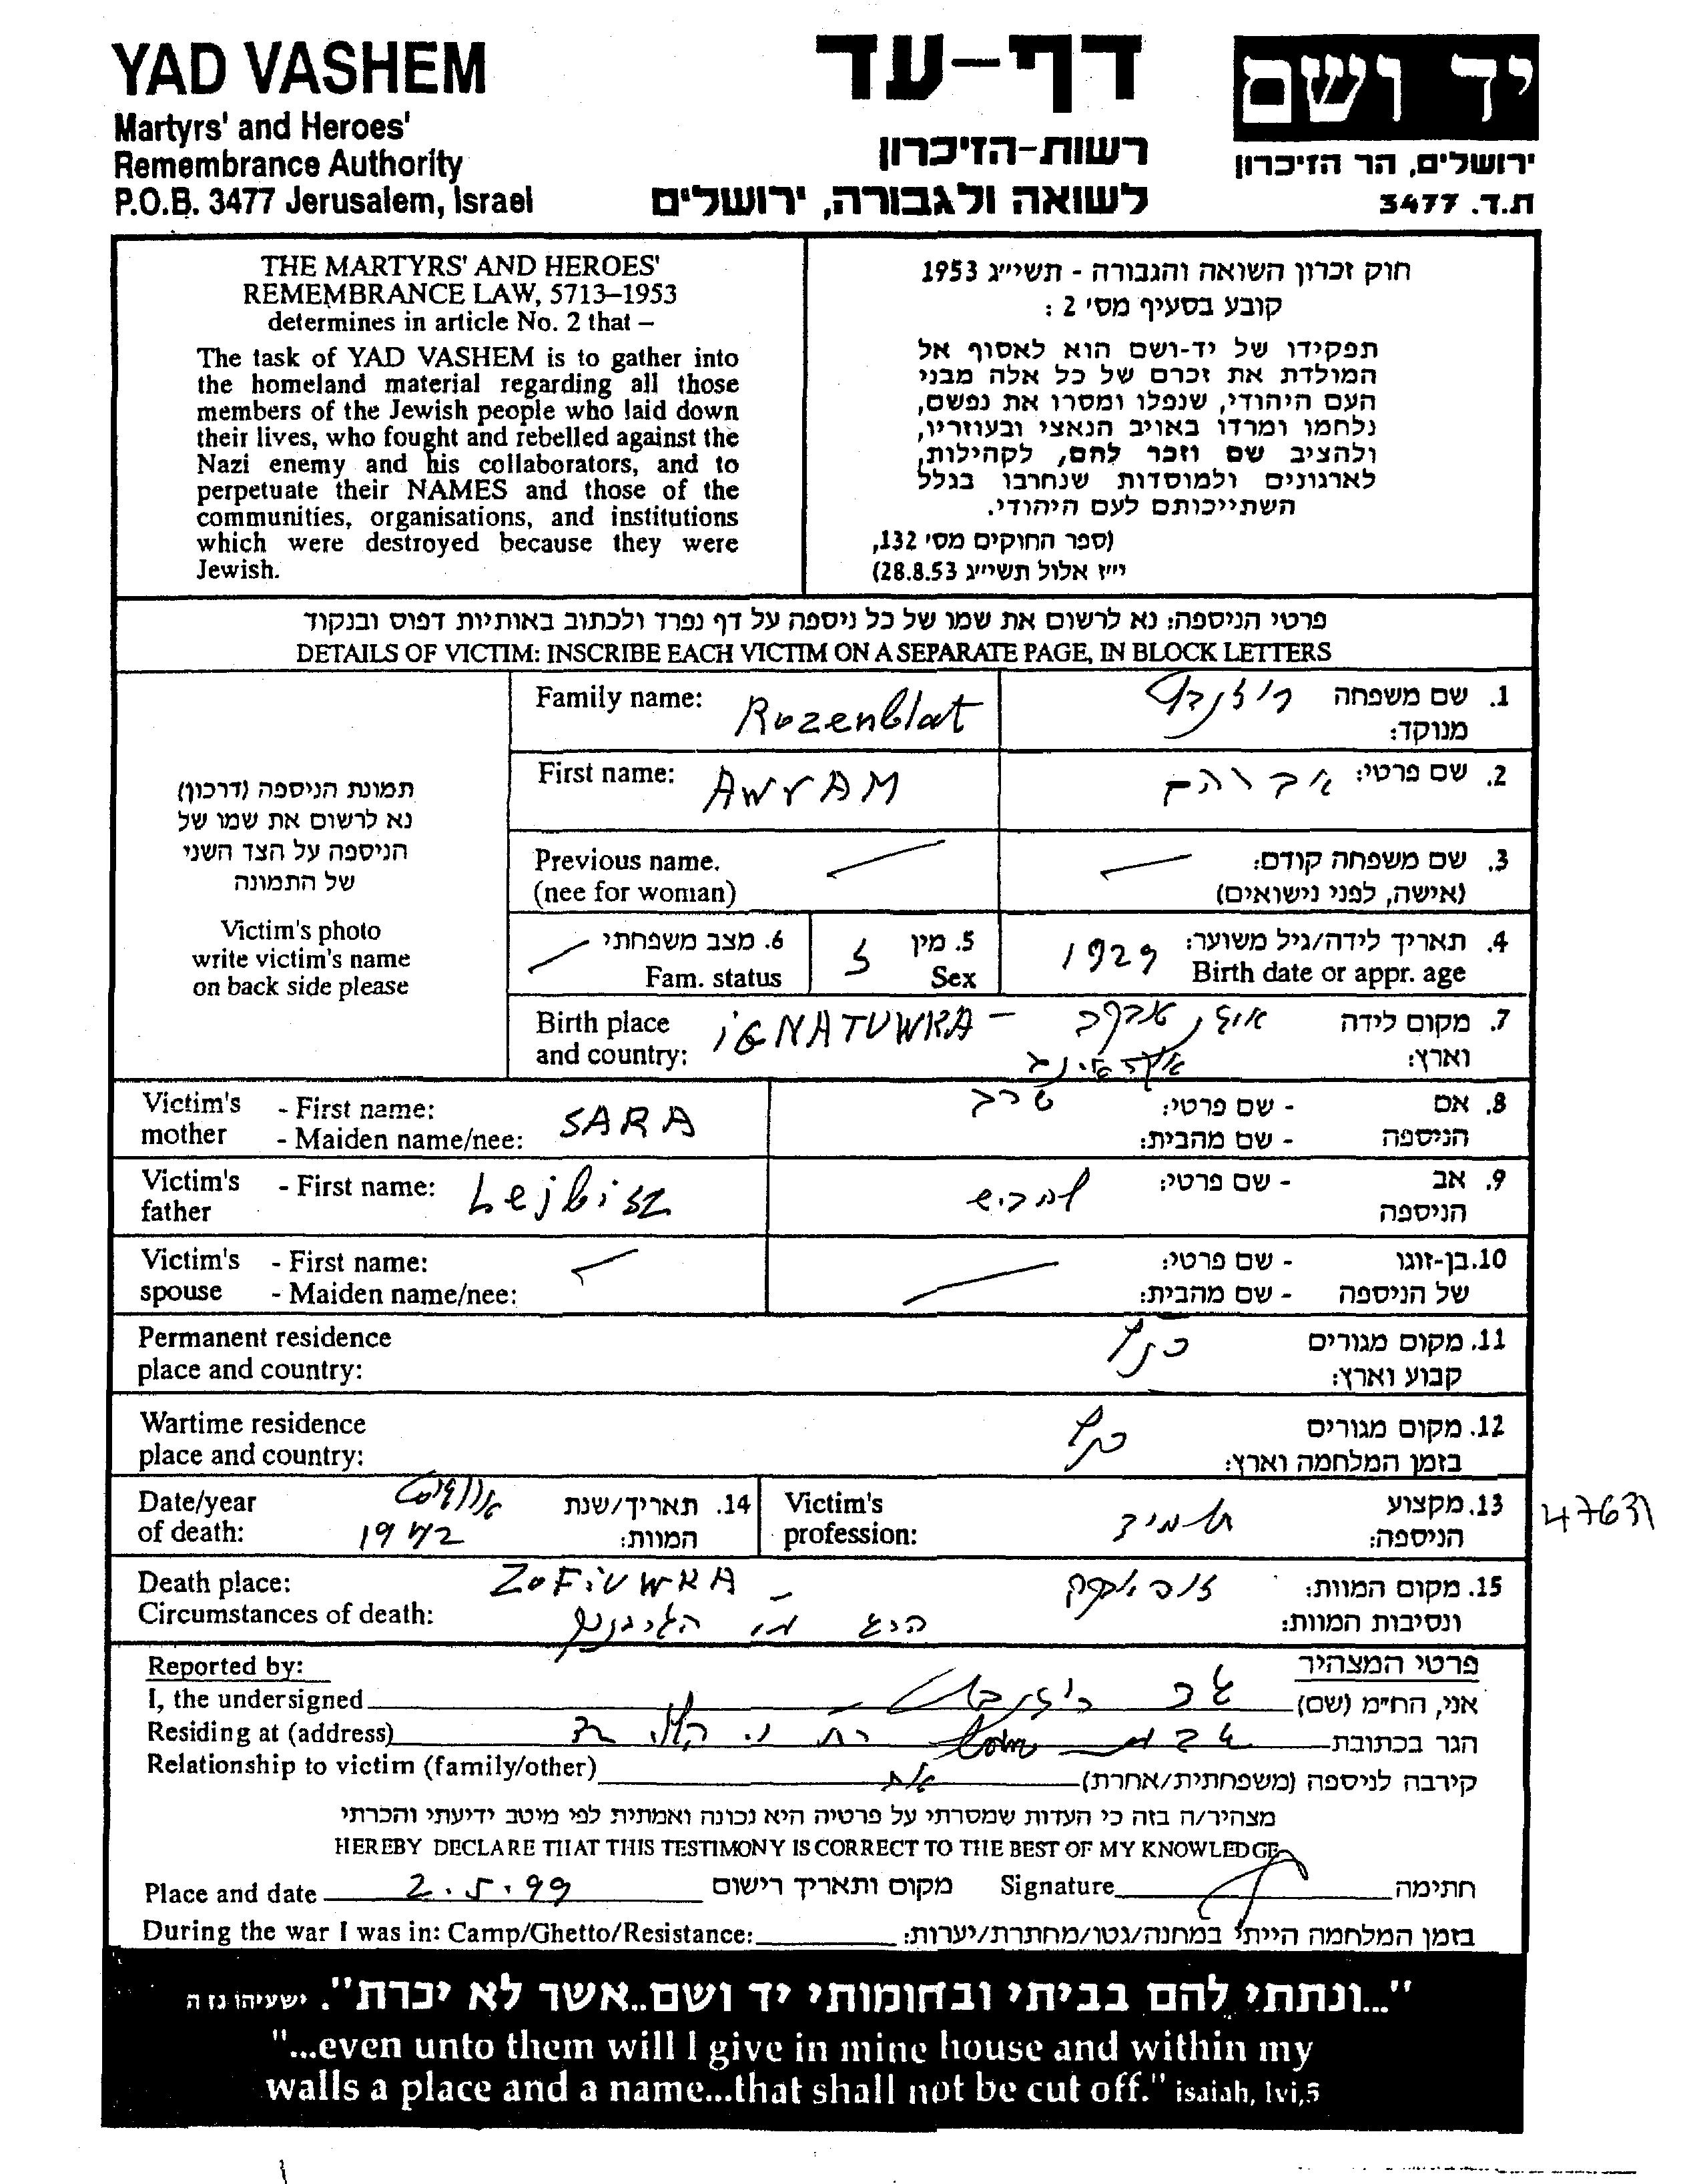 YAD VASHEM
Martyrs' and Heroes'
Remembrance Authority
P.O.B. 3477 Jerusalem, Israel
דף-עד
רשות-הזיכרון
לשואה ולגבורה, ירושלים
יד ושם
ירושלים, הר הזיכרון
ת.ד. 3477
THE MARTYRS' AND HEROES'
REMEMBRANCE LAW, 5713–1953
determines in article No. 2 that –
The task of YAD VASHEM is to gather into
the homeland material regarding all those
members of the Jewish people who laid down
their lives, who fought and rebelled against the
Nazi enemy and his collaborators, and to
perpetuate their NAMES and those of the
communities, organisations, and institutions
which were destroyed because they were
Jewish.
חוק זכרון השואה והגבורה - תשי״ג 1953
קובע בסעיף מס׳ 2 :
תפקידו של יד-ושם הוא לאסוף אל
המולדת את זכרם של כל אלה מבני
העם היהודי, שנפלו ומסרו את נפשם,
נלחמו ומרדו באויב הנאצי ובעוזריו,
ולהציב שם וזכר להם, לקהילות,
לארגונים ולמוסדות שנחרבו בגלל
השתייכותם לעם היהודי.
(ספר החוקים מס׳ 132,
י״ז אלול תשי״ג 28.8.53)
פרטי הניספה: נא לרשום את שמו של כל ניספה על דף נפרד ולכתוב באותיות דפוס ובנקוד
DETAILS OF VICTIM: INSCRIBE EACH VICTIM ON A SEPARATE PAGE, IN BLOCK LETTERS
תמונת הניספה (דרכון)
נא לרשום את שמו של
הניספה על הצד השני
של התמונה
Victim's photo
write victim's name
on back side please
Family name: Rozenblat
1. שם משפחה
מנוקד:
First name: AWRAM
2. שם פרטי: אברהם
Previous name.
(nee for woman)
3. שם משפחה קודם:
(אישה, לפני נישואים)
6. מצב משפחתי
Fam. status
5. מין ז
Sex
4. תאריך לידה/גיל משוער: 1929
Birth date or appr. age
Birth place
and country: IGNATUWKA -
7. מקום לידה
וארץ:
אוקראינה
Victim's
mother
- First name:
- Maiden name/nee: SARA
8. אם
הניספה
- שם פרטי: שרה
- שם מהבית:
Victim's
father
- First name: Lejbisz
9. אב
הניספה
- שם פרטי: לייביש
Victim's
spouse
- First name:
- Maiden name/nee:
10. בן-זוגו
של הניספה
- שם פרטי:
- שם מהבית:
Permanent residence
place and country:
11. מקום מגורים
קבוע וארץ: כנ״ל
Wartime residence
place and country:
12. מקום מגורים
בזמן המלחמה וארץ: כנ״ל
Date/year
of death:
14. תאריך/שנת
המוות: אוגוסט
1942
Victim's
profession:
13. מקצוע
הניספה: תלמיד
47631
Death place: ZOFIUWKA -
Circumstances of death:
15. מקום המוות:
ונסיבות המוות:
Reported by:
פרטי המצהיר
I, the undersigned
אני, הח״מ (שם)
Residing at (address)
הגר בכתובת
Relationship to victim (family/other)
קירבה לניספה (משפחתית/אחרת) אח
מצהיר/ה בזה כי העדות שמסרתי על פרטיה היא נכונה ואמתית לפי מיטב ידיעתי והכרתי
HEREBY DECLARE THAT THIS TESTIMONY IS CORRECT TO THE BEST OF MY KNOWLEDGE
Place and date 2.5.99 מקום ותאריך רישום
Signature חתימה
During the war I was in: Camp/Ghetto/Resistance:
בזמן המלחמה הייתי במחנה/גטו/מחתרת/יערות:
"...ונתתי להם בביתי ובחומותי יד ושם..אשר לא יכרת". ישעיהו נו ה
"...even unto them will I give in mine house and within my
walls a place and a name...that shall not be cut off." isaiah, lvi,5